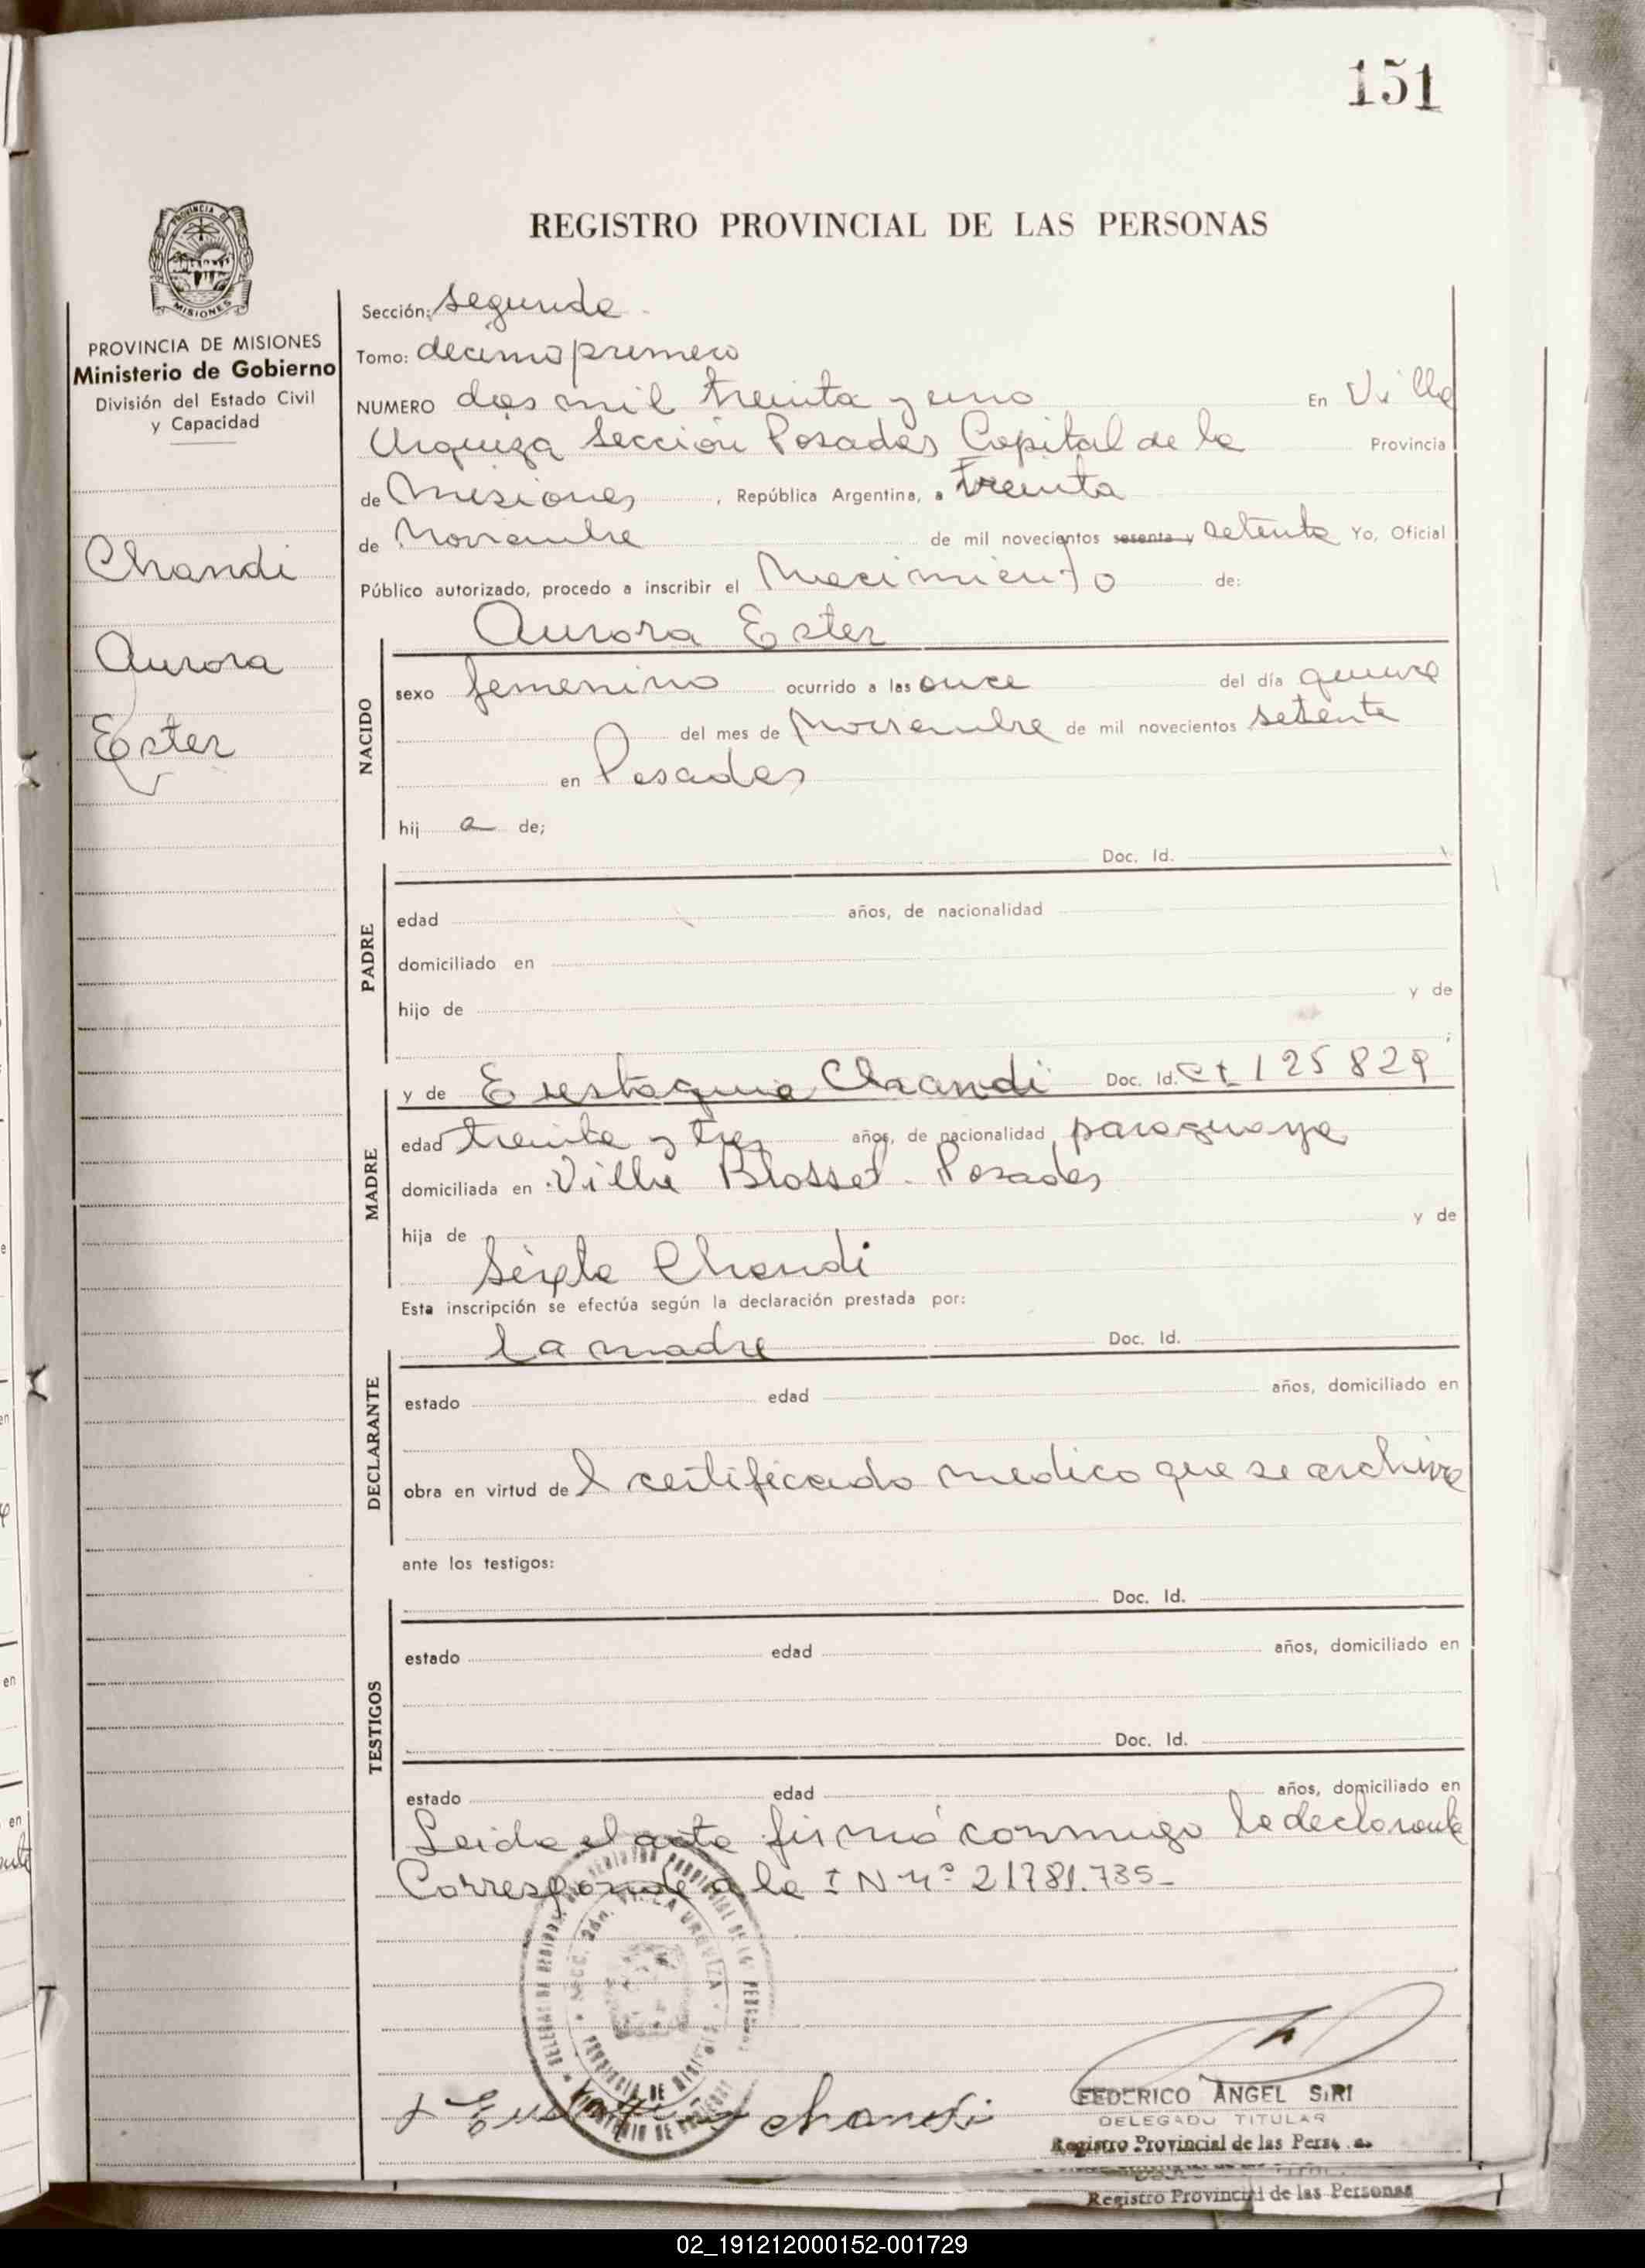 151
REGISTRO PROVINCIAL DE LAS PERSONAS
PROVINCIA DE MISIONES
Ministerio de Gobierno
División del Estado Civil
y Capacidad
Chandi
Aurora
Ester
Sección: segunda
Tomo: decimo primero
NUMERO dos mil treinta y uno En Villa
Urquiza Sección Posadas Capital de la Provincia
de Misiones, República Argentina, a treinta
de Noviembre de mil novecientos sesenta y setenta Yo, Oficial
Público autorizado, procedo a inscribir el Nacimiento de:
Aurora Ester
NACIDO
sexo femenino ocurrido a las once del día quince
del mes de Noviembre de mil novecientos setenta
en Posadas
hij a de;
Doc. Id.
PADRE
edad años, de nacionalidad
domiciliado en
hijo de y de
;
MADRE
y de Eustaquia Chandi Doc. Id. 125829
edad treinta y tres años, de nacionalidad paraguaya
domiciliada en Villa Blosset - Posadas
hija de y de
Chandi
Esta inscripción se efectúa según la declaración prestada por:
la madre Doc. Id.
DECLARANTE
estado edad años, domiciliado en
obra en virtud del certificado medico que se archiva
ante los testigos:
Doc. Id.
TESTIGOS
estado edad años, domiciliado en
Doc. Id.
estado edad años, domiciliado en
Leida el acta firmó conmigo la declarante
Corresponde a la I N nº 21781.735-
Chandi
FEDERICO ANGEL SIRI
DELEGADO TITULAR
Registro Provincial de las Pers
Registro Provincial de las Personas
02_191212000152-001729